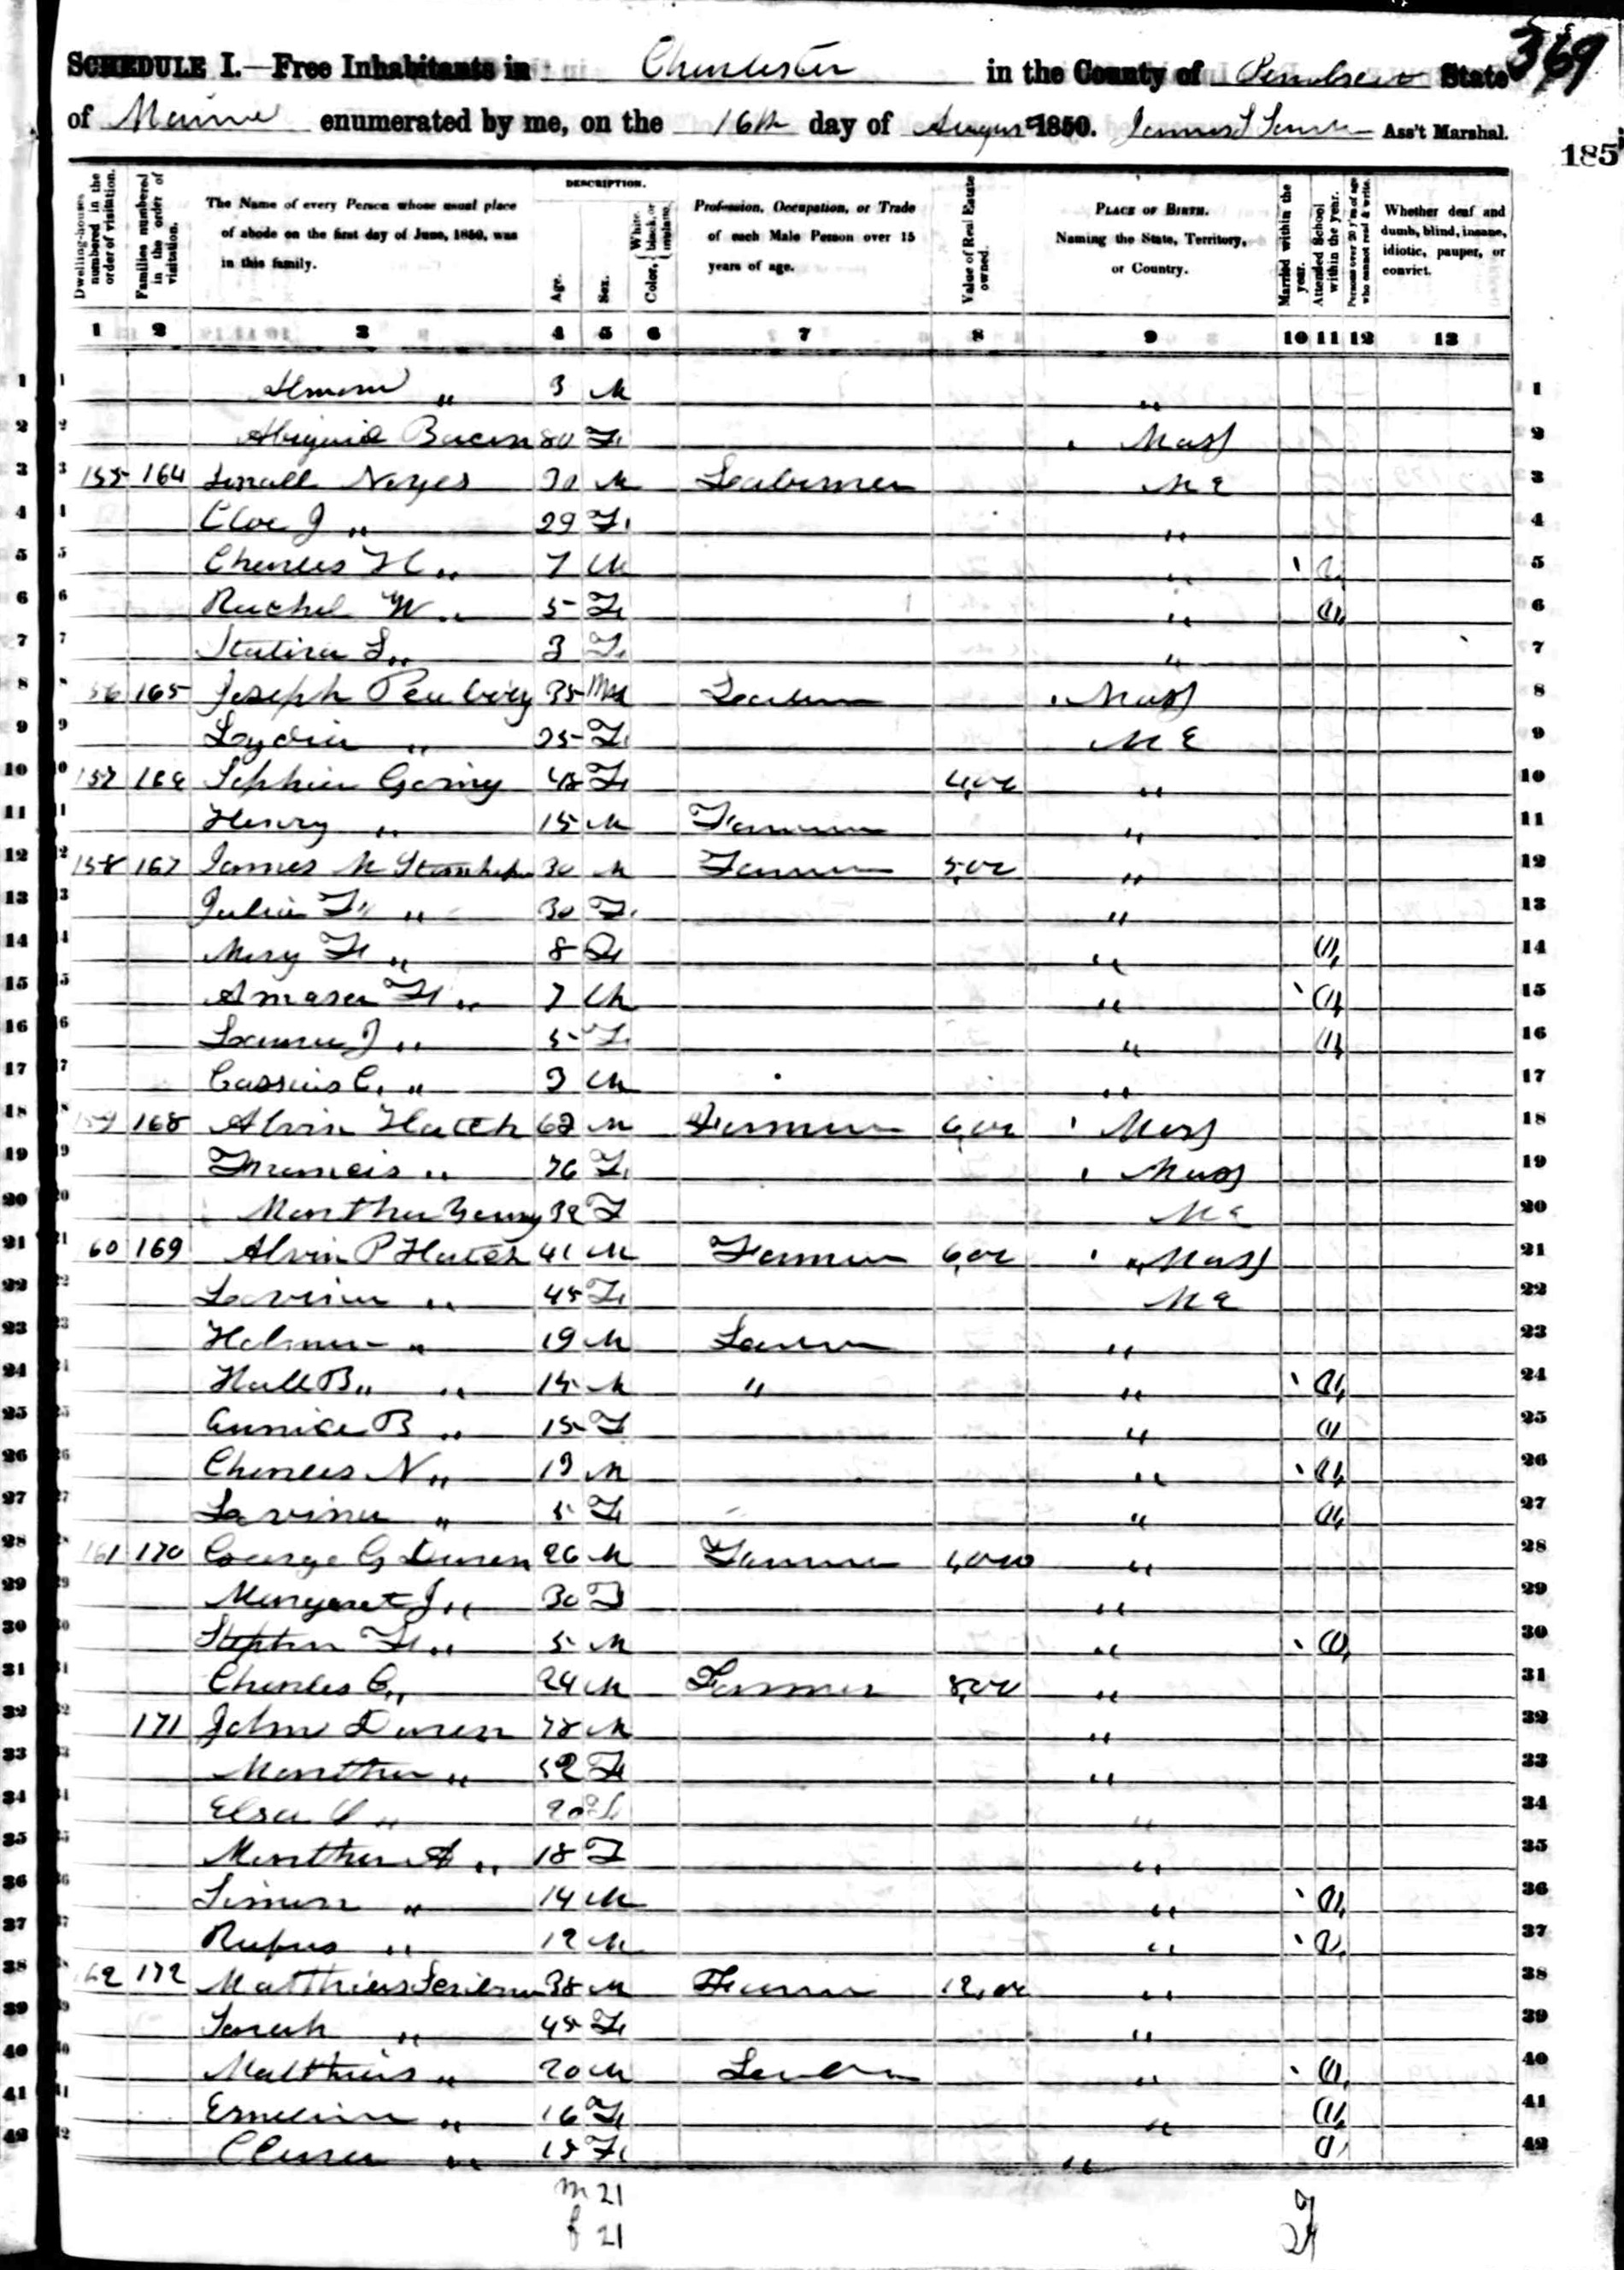 369
SCHEDULE I.—Free Inhabitants in Charleston in the County of Penobscot State
of Maine enumerated by me, on the 16th day of August 1850. Ass't Marshal.
185
Dwelling-houses numbered in the order of visitation.
Families numbered in the order of visitation.
The Name of every Person whose usual place of abode on the first day of June, 1850, was in this family.
DESCRIPTION.
Age.
Sex.
Color, White, black, or mulatto.
Profession, Occupation, or Trade of each Male Person over 15 years of age.
Value of Real Estate owned.
PLACE OF BIRTH. Naming the State, Territory, or Country.
Married within the year.
Attended School within the year.
Persons over 20 y'rs of age who cannot read & write.
Whether deaf and dumb, blind, insane, idiotic, pauper, or convict.
1 2 3 4 5 6 7 8 9 10 11 12 13
1 " 3 M " 1
2 Abigail Bacon 80 F Mass 2
3 155 164 Noyes 30 M Laborer ME 3
4 Cloe J " 29 F " 4
5 Charles H " 7 M " 1 5
6 Rachel W " 5 F " 1 6
7 Statira S " 3 F " 7
8 56 165 Joseph 35 M Laborer Mass 8
9 Lydia " 25 F ME 9
10 157 166 Sophia 48 F 400 " 10
11 Henry " 15 M Farmer " 11
12 158 167 James M 30 M Farmer 500 " 12
13 Julia F " 30 F " 13
14 Mary F " 8 F " 1 14
15 Amasa F " 7 M " 1 15
16 Laura J " 5 F " 1 16
17 Cassius C. " 3 M " 17
18 159 168 Alvin Hatch 68 M Farmer 600 Mass 18
19 Francis " 76 F Mass 19
20 Martha 32 F ME 20
21 60 169 Alvin P Hatch 41 M Farmer 600 " Mass 21
22 Lavina " 45 F ME 22
23 Holman " 19 M Laborer " 23
24 Hall B " " 15 M " " 1 24
25 Eunice B " 15 F " 1 25
26 Charles N " 13 M " 1 26
27 Lavina " 5 F " 1 27
28 161 170 George G Duren 26 M Farmer 1,000 " 28
29 Margaret J " 30 F " 29
30 Stephen " 5 M " 1 30
31 Charles C " 24 M Farmer 800 " 31
32 171 John Duren 78 M " 32
33 Martha " 52 F " 33
34 " 20 F " 34
35 Martha A " 18 F " 35
36 Simon " 14 M " 1 36
37 Rufus " 12 M " 1 37
38 162 172 Matthias 38 M Farmer 1200 " 38
39 Sarah " 45 F " 39
40 Matthias " 20 M Laborer " 1 40
41 Emeline " 16 F " 1 41
42 Clara " 15 F " 1 42
m 21
f 21